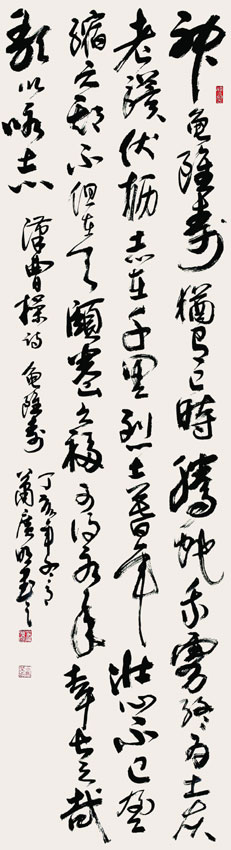 神龜雖壽猶有已時騰蛇乘霧終為土灰
老驥伏櫪志在千里烈士暮年壯心不已盈
縮之期不但在天頤養之福可得永年幸甚至哉
歌以咏志 漢曹操詩龜雖壽
丁亥年冬月
蕭